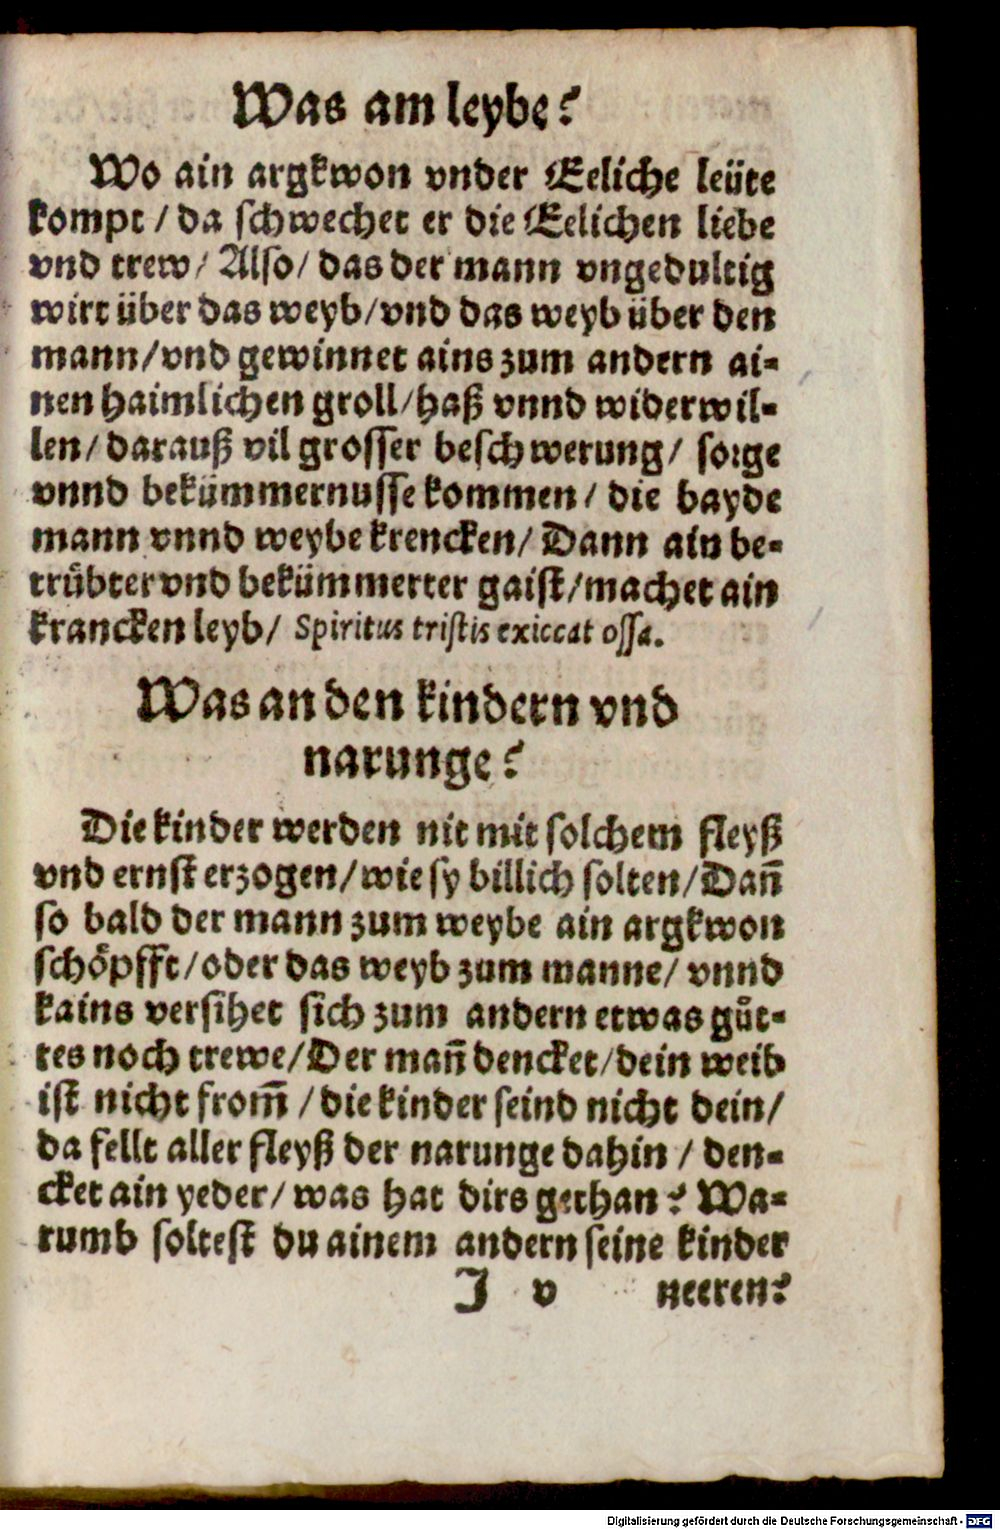 Was am leybe?
Wo ain argkwon vnder Eeliche leüte
kompt / da schwechet er die Eelichen liebe
vnd trew / Also / das der mann vngedultig
wirt über das weyb / vnd das weyb über den
mann / vnd gewinnet ains zum andern ai-
nen haimlichen groll / haß vnnd widerwil-
len / darauß vil grosser beschwerung / sorge
vnnd bekümmernusse kommen / die bayde
mann vnnd weybe krencken / Dann ain be-
trübter vnd bekümmerter gaist / machet ain
krancken leyb / Spiritus tristis exiccat ossa.
Was an den kindern vnd
narunge?
Die kinder werden nit mit solchem fleyß
vnd ernst erzogen / wie sy billich solten / Dañ
so bald der mann zum weybe ain argkwon
schöpfft / oder das weyb zum manne / vnnd
kains versihet sich zum andern etwas gůt-
tes noch trewe / Der mañ dencket / dein weib
ist nicht from̃ / die kinder seind nicht dein /
da fellt aller fleyß der narunge dahin / den-
cket ain yeder / was hat dirs gethan? Wa-
rumb soltest du ainem andern seine kinder
J v neeren?
Digitalisierung gefördert durch die Deutsche Forschungsgemeinschaft - DFG